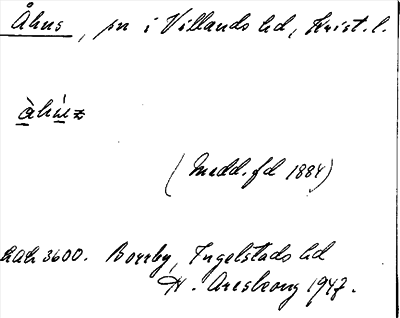 Åhus, sn i Villands hd, Krist. l.
àhúsz
(Medd. f d 1884)
LAL 3600. Borrby, Ingelstads hd
H. Areskoug 1947.